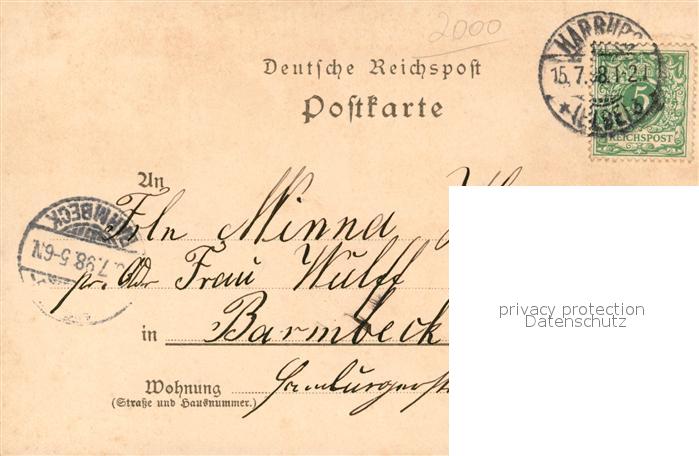 2000
Deutsche Reichspost
Postkarte
HARBURG
15.7.98.1-2N
* (ELBE) *
5
REICHSPOST
An
Frln Minna
pr. Adr. Frau Wulff
BARMBECK
7.98.5-6N.
in Barmbeck
Wohnung Hamburgerstr
(Straße und Hausnummer.)
privacy protection
Datenschutz